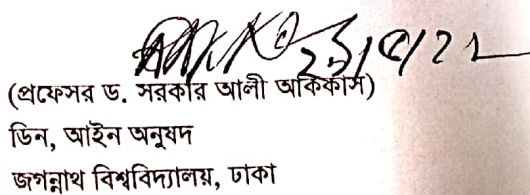 ২১/৫/২২
(প্রফেসর ড. সরকার আলী আককাস)
ডিন, আইন অনুষদ
জগন্নাথ বিশ্ববিদ্যালয়, ঢাকা